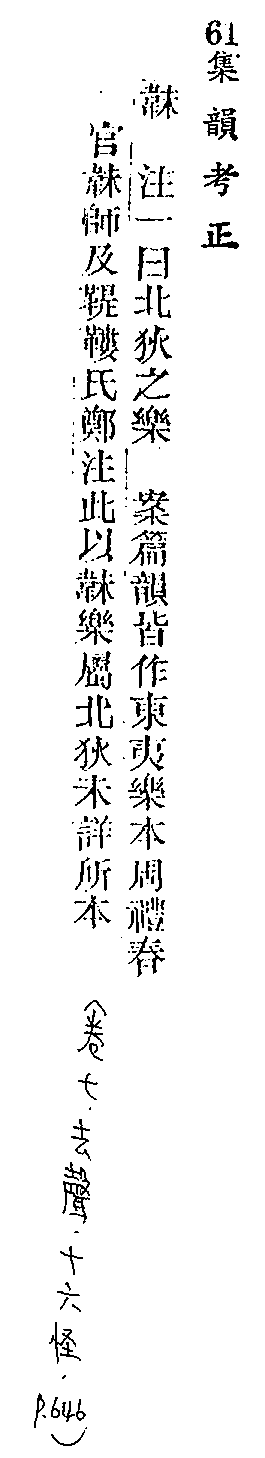 61集韻考正
韎 注一曰北狄之樂 案篇韻皆作東夷樂本周禮春
官韎師及鞮鞻氏鄭注此以韎樂屬北狄未詳所本
(卷七.去聲.十六怪.P.646)